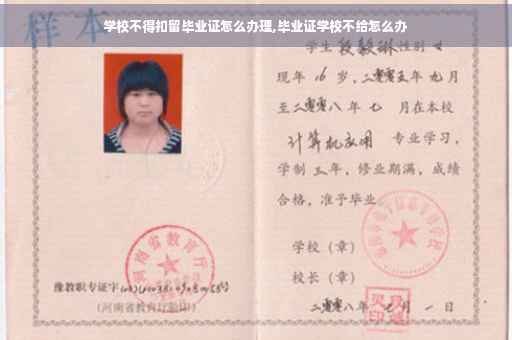 学校不得扣留毕业证怎么办理,毕业证学校不给怎么办
样本
学生段毅琳性别女
现年16岁,二零零五年九月
至二零零八年七月在本校
计算机应用 专业学习,
学制三年,修业期满,成绩
合格,准予毕业
学校(章)
校长(章)
二零零八年 月一日
河南省教育厅
豫教职专证字
(河南省教育厅验印)